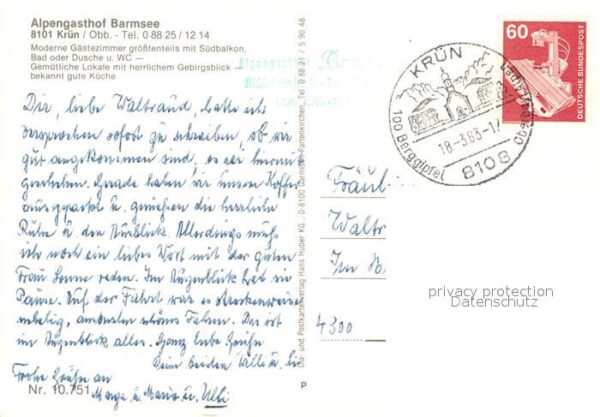 Alpengasthof Barmsee
8101 Krün / Obb. - Tel. 0 88 25 / 12 14
Moderne Gästezimmer größtenteils mit Südbalkon,
Bad oder Dusche u. WC –
Gemütliche Lokale mit herrlichem Gebirgsblick –
bekannt gute Küche
Dir, liebe Waltraud, hatte ich
versprochen sofort zu schreiben, ob wir
gut angekommen sind, es sei hiermit
geschehen. Gerade haben wir unsere Koffer
ausgepackt u. genießen die herrliche
Ruhe u. den Ausblick. Allerdings muß
ich noch ein liebes Wort mit der guten
Frau Sonne reden. Im Augenblick hat sie
Pause. Auf der Fahrt war es streckenweise
nebelig, ansonsten schönes Fahren. Das ist
im Augenblick alles. Ganz liebe Grüße
Dein beiden Willi u.
Frohe Grüße an
Marga u. Maria u. Ulli
Nr. 10.751
Dia- und Postkartenverlag Hans Huber KG · D-8100 Garmisch-Partenkirchen, Tel. 0 88 21 / 5 90 48
P
Alpengasthof Barmsee
KRÜN
18.-3.83-17
100 Berggipfel
8108
60
DEUTSCHE BUNDESPOST
Fräul
Waltr
Im
4300
privacy protection
Datenschutz